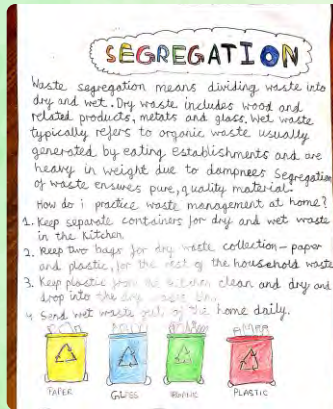 SEGREGATION
Waste segregation means dividing waste into
dry and wet. Dry waste includes wood and
related products, metals and glass. Wet waste
typically refers to organic waste usually
generated by eating establishments and are
heavy in weight due to dampness segregation
of waste ensures pure, quality material.
How do i practice waste management at home?
1. Keep separate containers for dry and wet waste
in the Kitchen
2. Keep two bags for dry waste collection - paper
and plastic, for the rest of the household waste
3. Keep plastic from the kitchen clean and dry and
drop into the dry waste bin.
4. Send wet waste out of the home daily.
PAPER GLASS ORGANIC PLASTIC